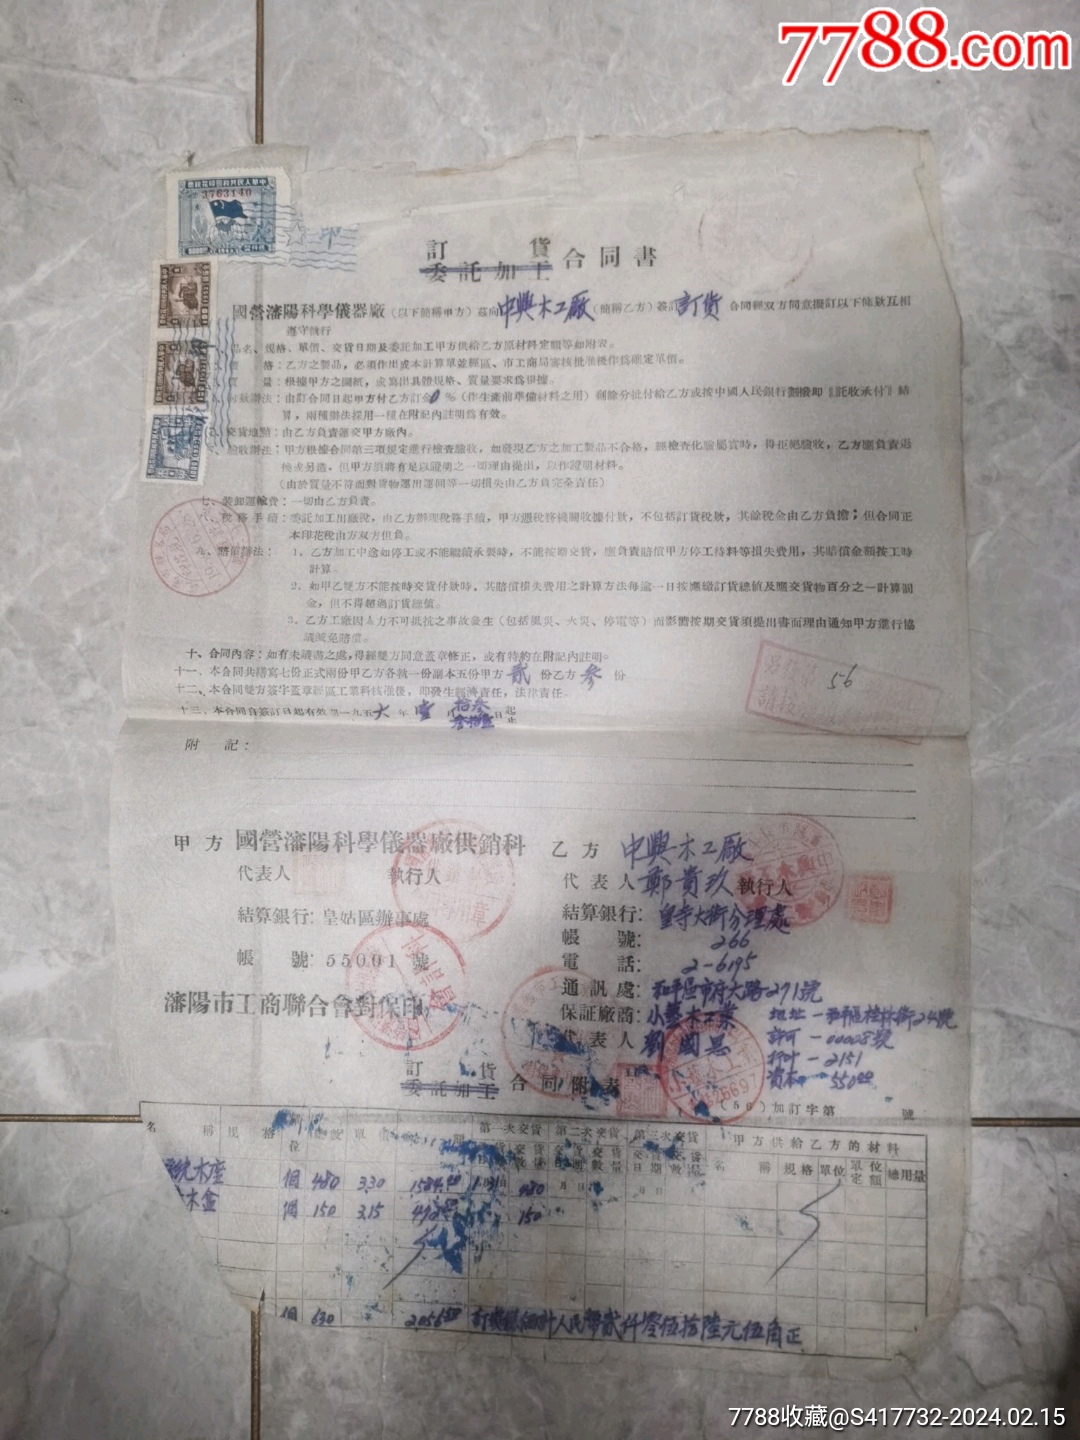 7788.com
中華人民共和國印花稅票
3763140
訂貨
委託加工 合同書
國營瀋陽科學儀器廠(以下簡稱甲方)茲向中興木工廠(簡稱乙方)簽訂訂貨合同經双方同意擬訂以下條款互相
遵守執行
品名、規格、單價、交貨日期及委託加工甲方供給乙方原材料定額等如附表。
格:乙方之製品,必須作出成本計算單並經區、市工商局審核批准後作為確定單價。
質量:根據甲方之圖紙,或寫出具體規格、質量要求為根據。
付款辦法:由訂合同日起甲方付乙方訂金0%(作生產前準備材料之用)剩餘分批付給乙方或按中國人民銀行劃撥即『託收承付』結
算,兩種辦法採用一種在附記內註明為有效。
交貨地點:由乙方負責運交甲方廠內。
驗收辦法:甲方根據合同第三項規定進行檢查驗收,如發現乙方之加工製品不合格,經檢查化驗屬實時,得拒絕驗收,乙方應負責退
換或另造,但甲方須將有足以證明之一切理由提出,以作證明材料。
(由於質量不符而對貨物運出運回等一切損失由乙方負完全責任)
七、裝卸運輸費:一切由乙方負責。
八、稅務手續:委託加工出廠稅,由乙方辦理稅務手續,甲方憑稅務機關收據付款,不包括訂貨稅款,其餘稅金由乙方負擔;但合同正
本印花稅由方双方但負。
九、賠償辦法:1.乙方加工中途如停工或不能繼續承製時,不能按期交貨,應負責賠償甲方停工待料等損失費用,其賠償金額按工時
計算。
2.如甲乙雙方不能按時交貨付款時,其賠償損失費用之計算方法每逾一日按應繳訂貨總值及應交貨物百分之一計算罰
金,但不得超過訂貨總值。
3.乙方工廠因人力不可抵抗之事故發生(包括風災、火災、停電等)而影響按期交貨須提出書面理由通知甲方進行協
議減免賠償。
十、合同內容:如有未盡書之處,得經雙方同意蓋章修正,或有特約在附記內註明。
十一、本合同共繕寫七份正式兩份甲乙方各執一份副本五份甲方貳份乙方參份
十二、本合同雙方簽字蓋章經區工業科核准後,即發生經濟責任,法律責任。
十三、本合同自簽訂日起有效 一九五六年壹月拾參日起
叁拾壹 止
56
附記:
甲方 國營瀋陽科學儀器廠供銷科
代表人 執行人
結算銀行:皇姑區辦事處
帳號:55001號
瀋陽市工商聯合會對保印
乙方 中興木工廠
代表人 鄭貴玖 執行人
結算銀行:皇寺大街分理處
帳號:266
電話:2-6195
通訊處:和平區市府大路271號
保証廠商:小型木工業 地址-和平區桂林街24號
代表人 劉國恩 許可-00028號
行叶-2151
資本-550
訂貨
委託加工 合同附表
(56)加訂字第 號
名稱 規格 單位 總數 單價 第一次交貨 第二次交貨 第三次交貨 甲方供給乙方的材料
交貨日期 交貨數量 名稱 規格 單位 單位定額 總用量
木座 個 480 3.30 1584.00 480
木盒 個 150 3.15 150
個 630 2056.50 訂貨總値計人民幣貳仟零伍拾陸元伍角正
7788收藏@S417732-2024.02.15